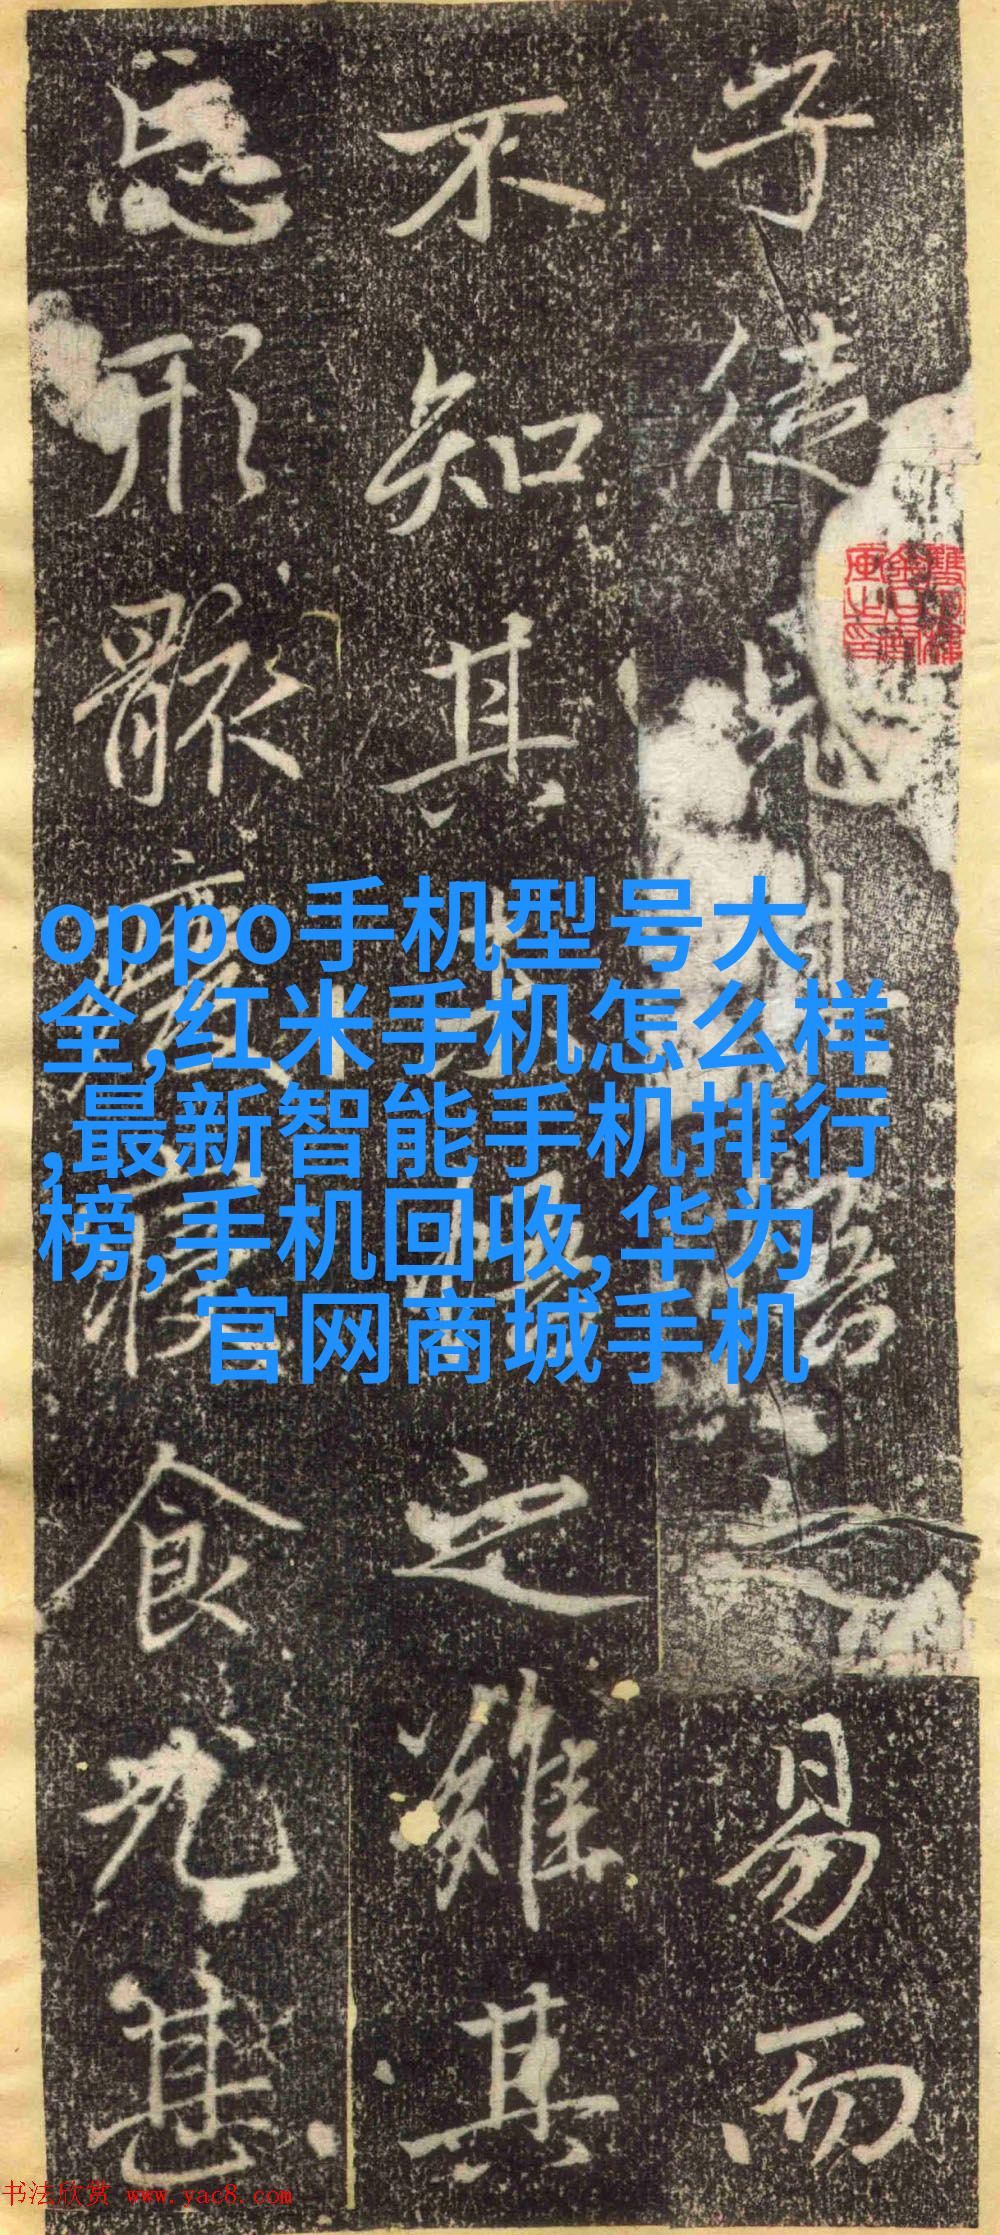 oppo手机型号大
全,红米手机怎么样
,最新智能手机排行
榜,手机回收,华为
官网商城手机
子使易而
不知其之難其
忘形骸廢寢食尤甚
书法欣赏 www.yac8.com